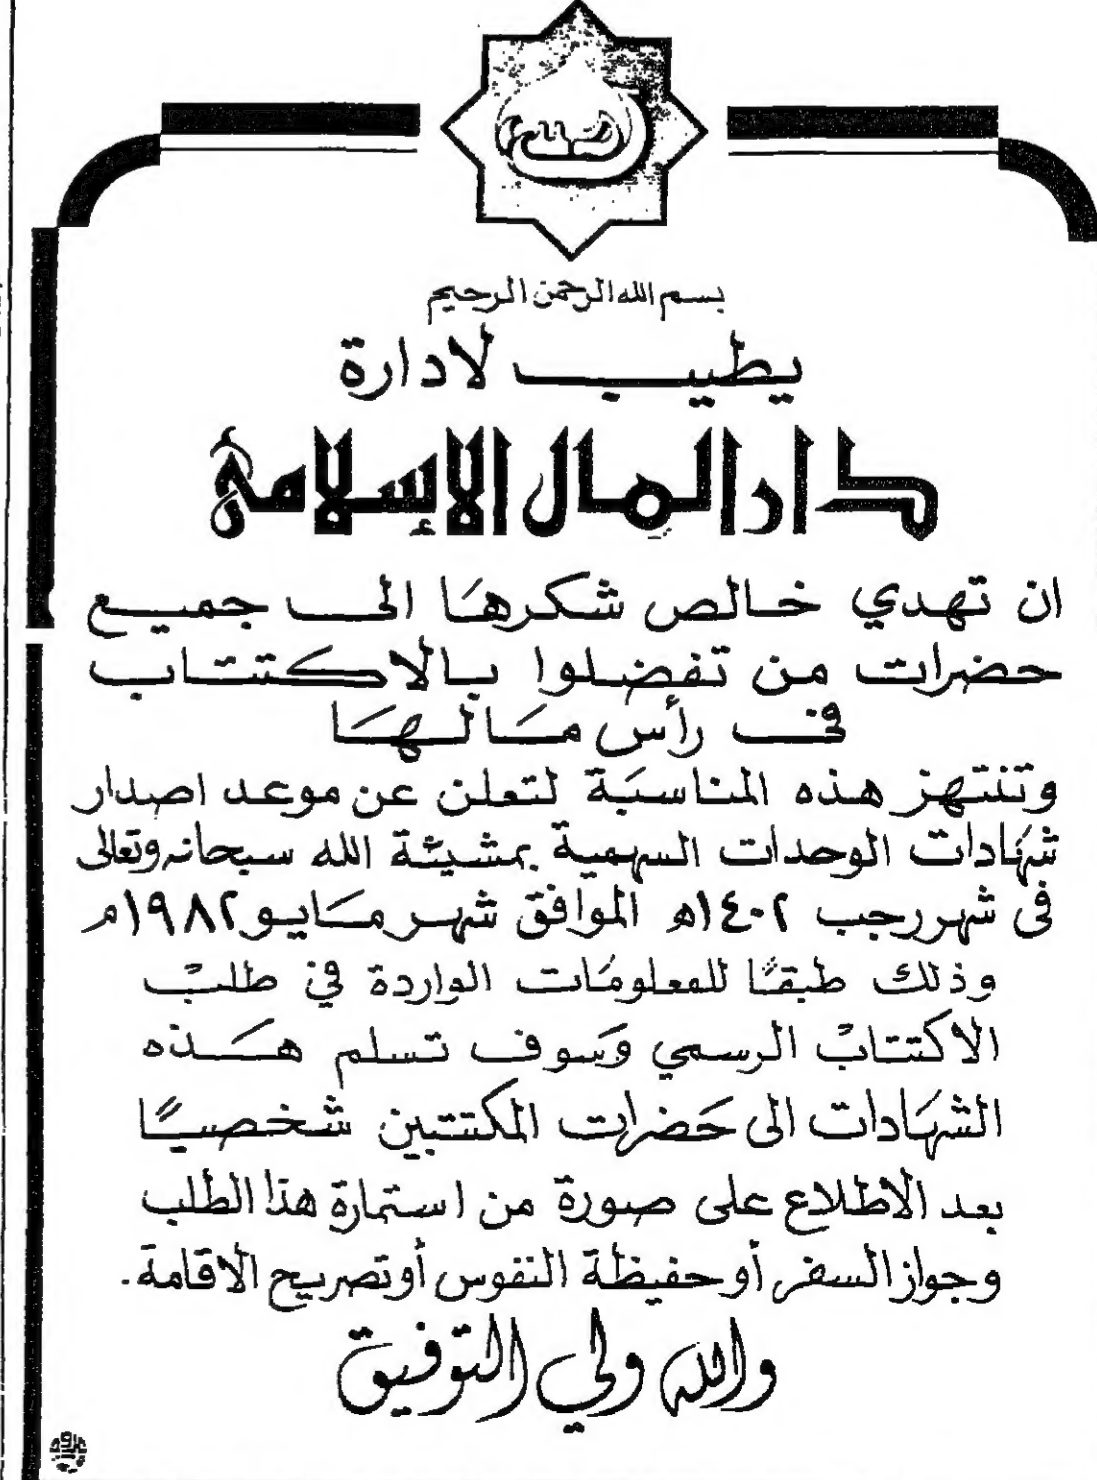 بسم الله الرحمن الرحيم
يطيب لادارة
دار المال الإسلامي
ان تهدي خالص شكرها الى جميع
حضرات من تفضلوا بالاكتتاب
في رأس مالها
وتنتهز هذه المناسبة لتعلن عن موعد اصدار
شهادات الوحدات السهمية بمشيئة الله سبحانه وتعالى
في شهر رجب ١٤٠٢هـ الموافق شهر مايو ١٩٨٢م
وذلك طبقًا للمعلومات الواردة في طلب
الاكتتاب الرسمي وسوف تسلم هذه
الشهادات الى حضرات المكتتبين شخصيًا
بعد الاطلاع على صورة من استمارة هذا الطلب
وجواز السفر أو حفيظة النفوس أو تصريح الاقامة.
والله ولي التوفيق